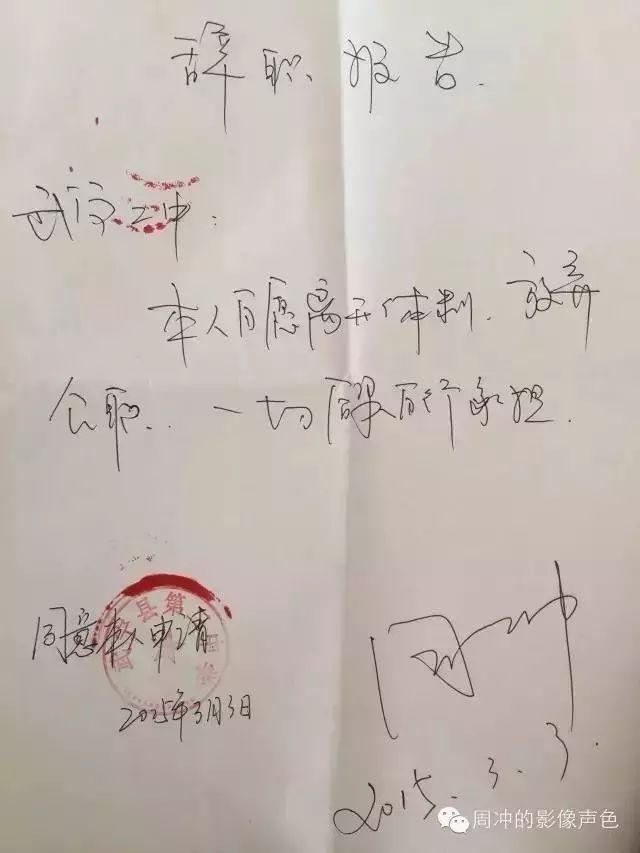 辞职报告.
武宁二中:
本人自愿离开体制.放弃
公职.一切后果自行承担.
县第
同意本人申请
2015年3月3日
周冲
2015.3.3.
周冲的影像声色